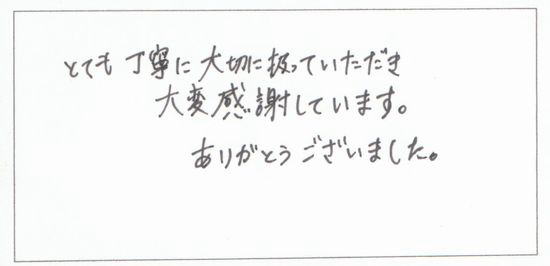 とても丁寧に大切に扱っていただき
大変感謝しています。
ありがとうございました。